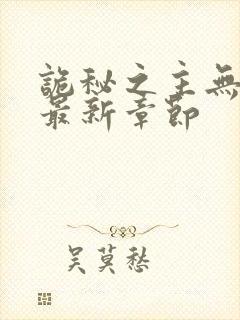 詭秘之主無
最新章節
吳莫愁